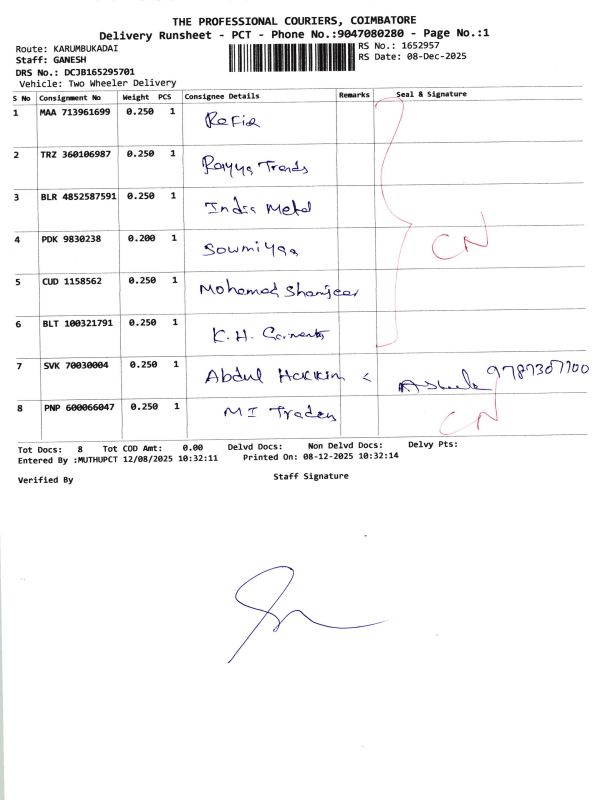 THE PROFESSIONAL COURIERS, COIMBATORE
Delivery Runsheet - PCT - Phone No.:9047080280 - Page No.:1
Route: KARUMBUKADAI RS No.: 1652957
Staff: GANESH RS Date: 08-Dec-2025
DRS No.: DCJB165295701
Vehicle: Two Wheeler Delivery
S No Consignment No Weight PCS Consignee Details Remarks Seal & Signature
1 MAA 713961699 0.250 1 Rafia
2 TRZ 360106987 0.250 1 Rayya Trends
3 BLR 4852587591 0.250 1 India Metal
4 PDK 9830238 0.200 1 Sowmiyaa CN
5 CUD 1158562 0.250 1 Mohamed
6 BLT 100321791 0.250 1 K.H. Garments
7 SVK 70030004 0.250 1 Abdul Hakkim < 9787307700
8 PNP 600066047 0.250 1 MI Traders CN
Tot Docs: 8 Tot COD Amt: 0.00 Delvd Docs: Non Delvd Docs: Delvy Pts:
Entered By :MUTHUPCT 12/08/2025 10:32:11 Printed On: 08-12-2025 10:32:14
Verified By Staff Signature